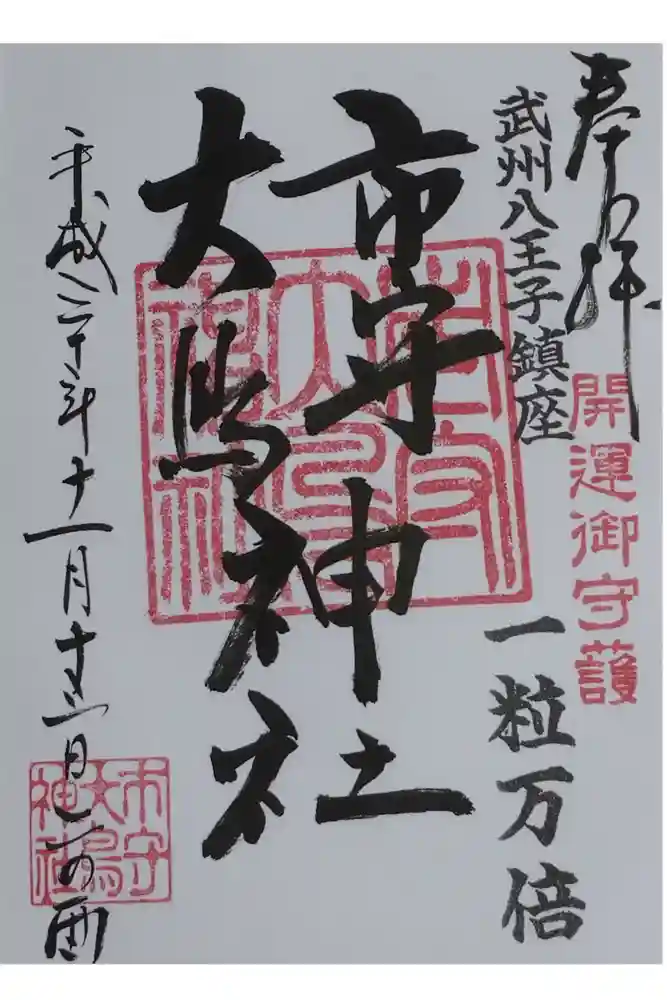 奉拝
開運御守護
武州八王子鎮座
一粒万倍
市守神社
大鳥神社
市守
大鳥
神社
平成三十年十一月十三日二の酉
市守
大鳥
神社